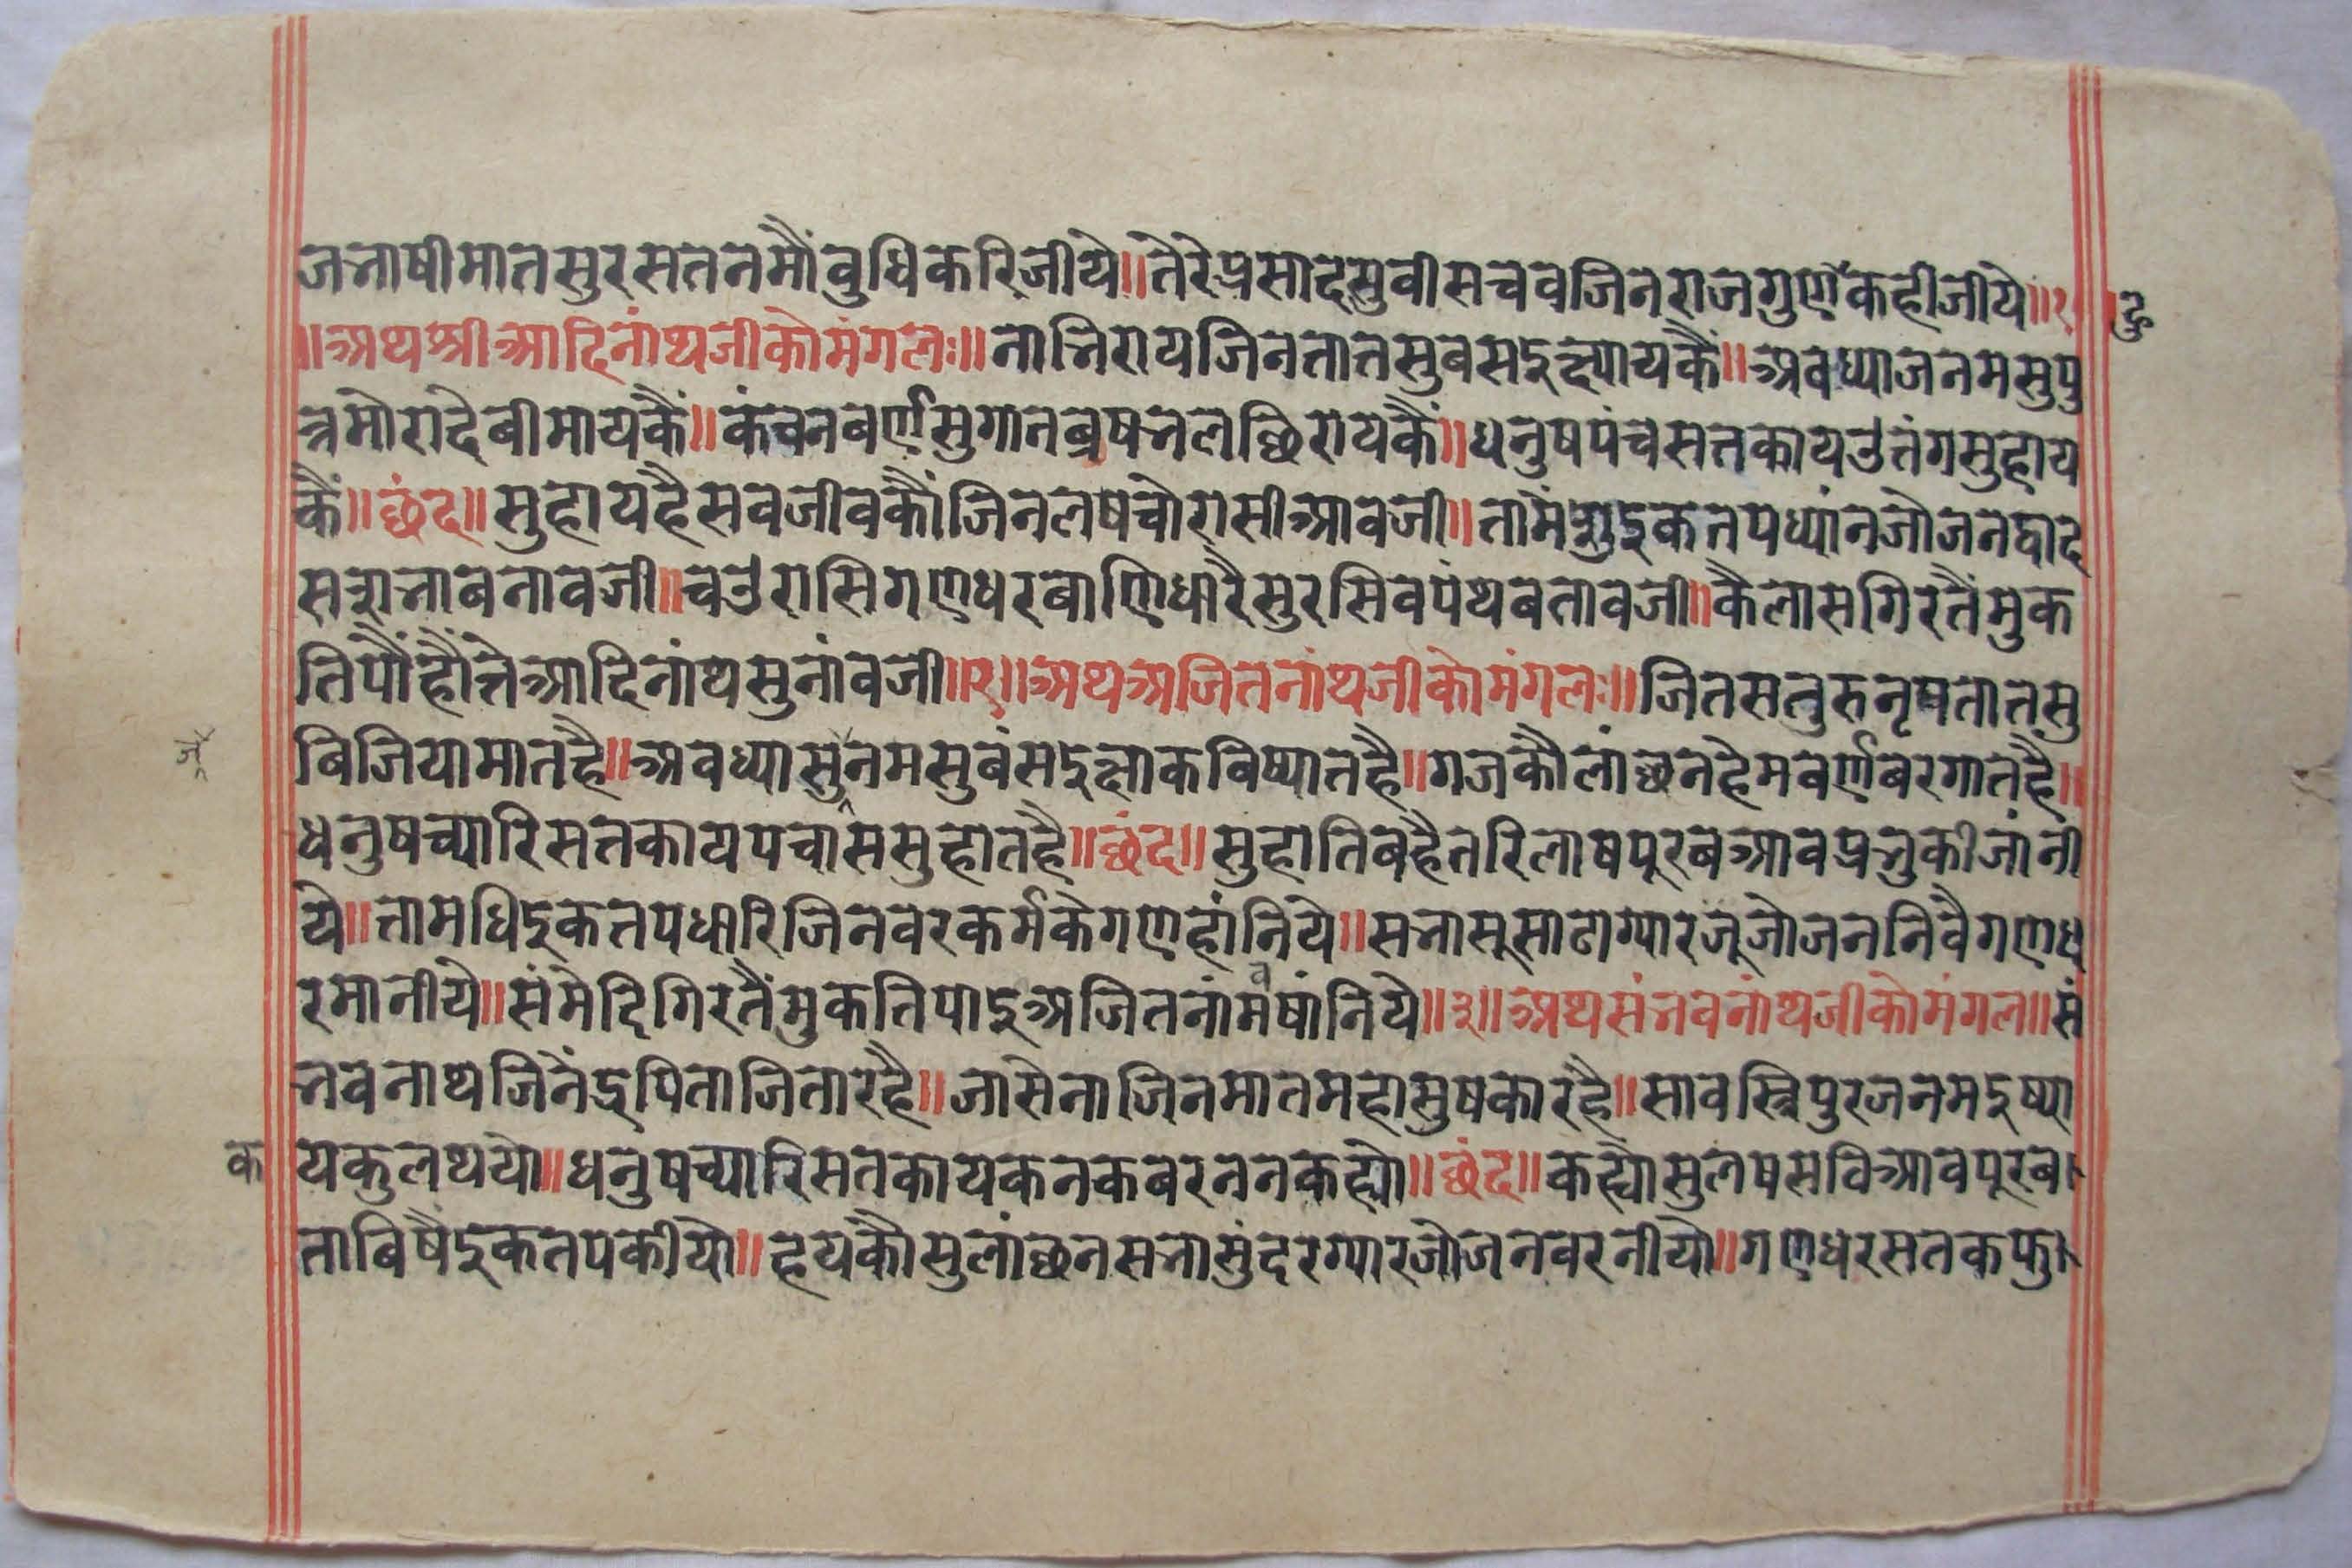 जनभाषीमातसुरसतनमौंवुधिकरिजीये॥तैरेप्रसादसुवीसचवजिनराजगुणकहीजीये॥१॥
॥अथश्रीआदिनांथजीकोमंगलः॥नाभिरायजिनतातसुबसइक्ष्यायकैं॥अवध्याजनमसुपु
त्रमोरादेबीमायकैं॥कंचनबर्णसुगातब्रषभलछिरायकैं॥धनुषपंचसतकायउतंगसुहाय
कैं॥छंद॥सुहायहैसवजीवकौंजिनलषचोरासीआवजी॥तामंझइकतपध्यांनजोजनद्वाद
सझभाबनावजी॥चउरासिगणधरबाणिधारैसुरसिवपंथबतावजी॥कैलासगिरतैंमुक
तिपौंहौंत्तेआदिनांथसुनांवजी॥२॥अथअजितनांथजीकोमंगलः॥जितसतुरुनृपतातसु
बिजियामातहै॥अवध्यासुनमसुबंसइक्षाकबिष्यातहै॥गजकौलांछनहेमवर्णबरगातहै॥
धनुषच्यारिसतकायपचाससुहातहै॥छंद॥सुहातिबहैतरिलाषपूरबआवप्रभुकीजांनी
ये॥तामधिइकतपधारिजिनवरकर्मकेगणहांनिये॥सभासूसाढाग्यारजूजोजननिवैगणध
रमानीये॥संमेदिगिरतैंमुकतिपाइअजितनांमवषांनिये॥३॥अथसंभवनांथजीकोमंगल॥सं
भवनाथजिनेंद्रपिताजितारहै॥जासेनाजिनमातमहासुषकारहै॥सावस्त्रिपुरजनमइष्या
क यकुलथयो॥धनुषच्यारिसतकायकनकबरननकह्यो॥छंद॥कह्योसुलषसविआवपूरब
ताबिषैंइकतपकीयो॥हयकौसुलांछनसभासुंदरग्यारजोजनवरनीयो॥गणधरसतकफु